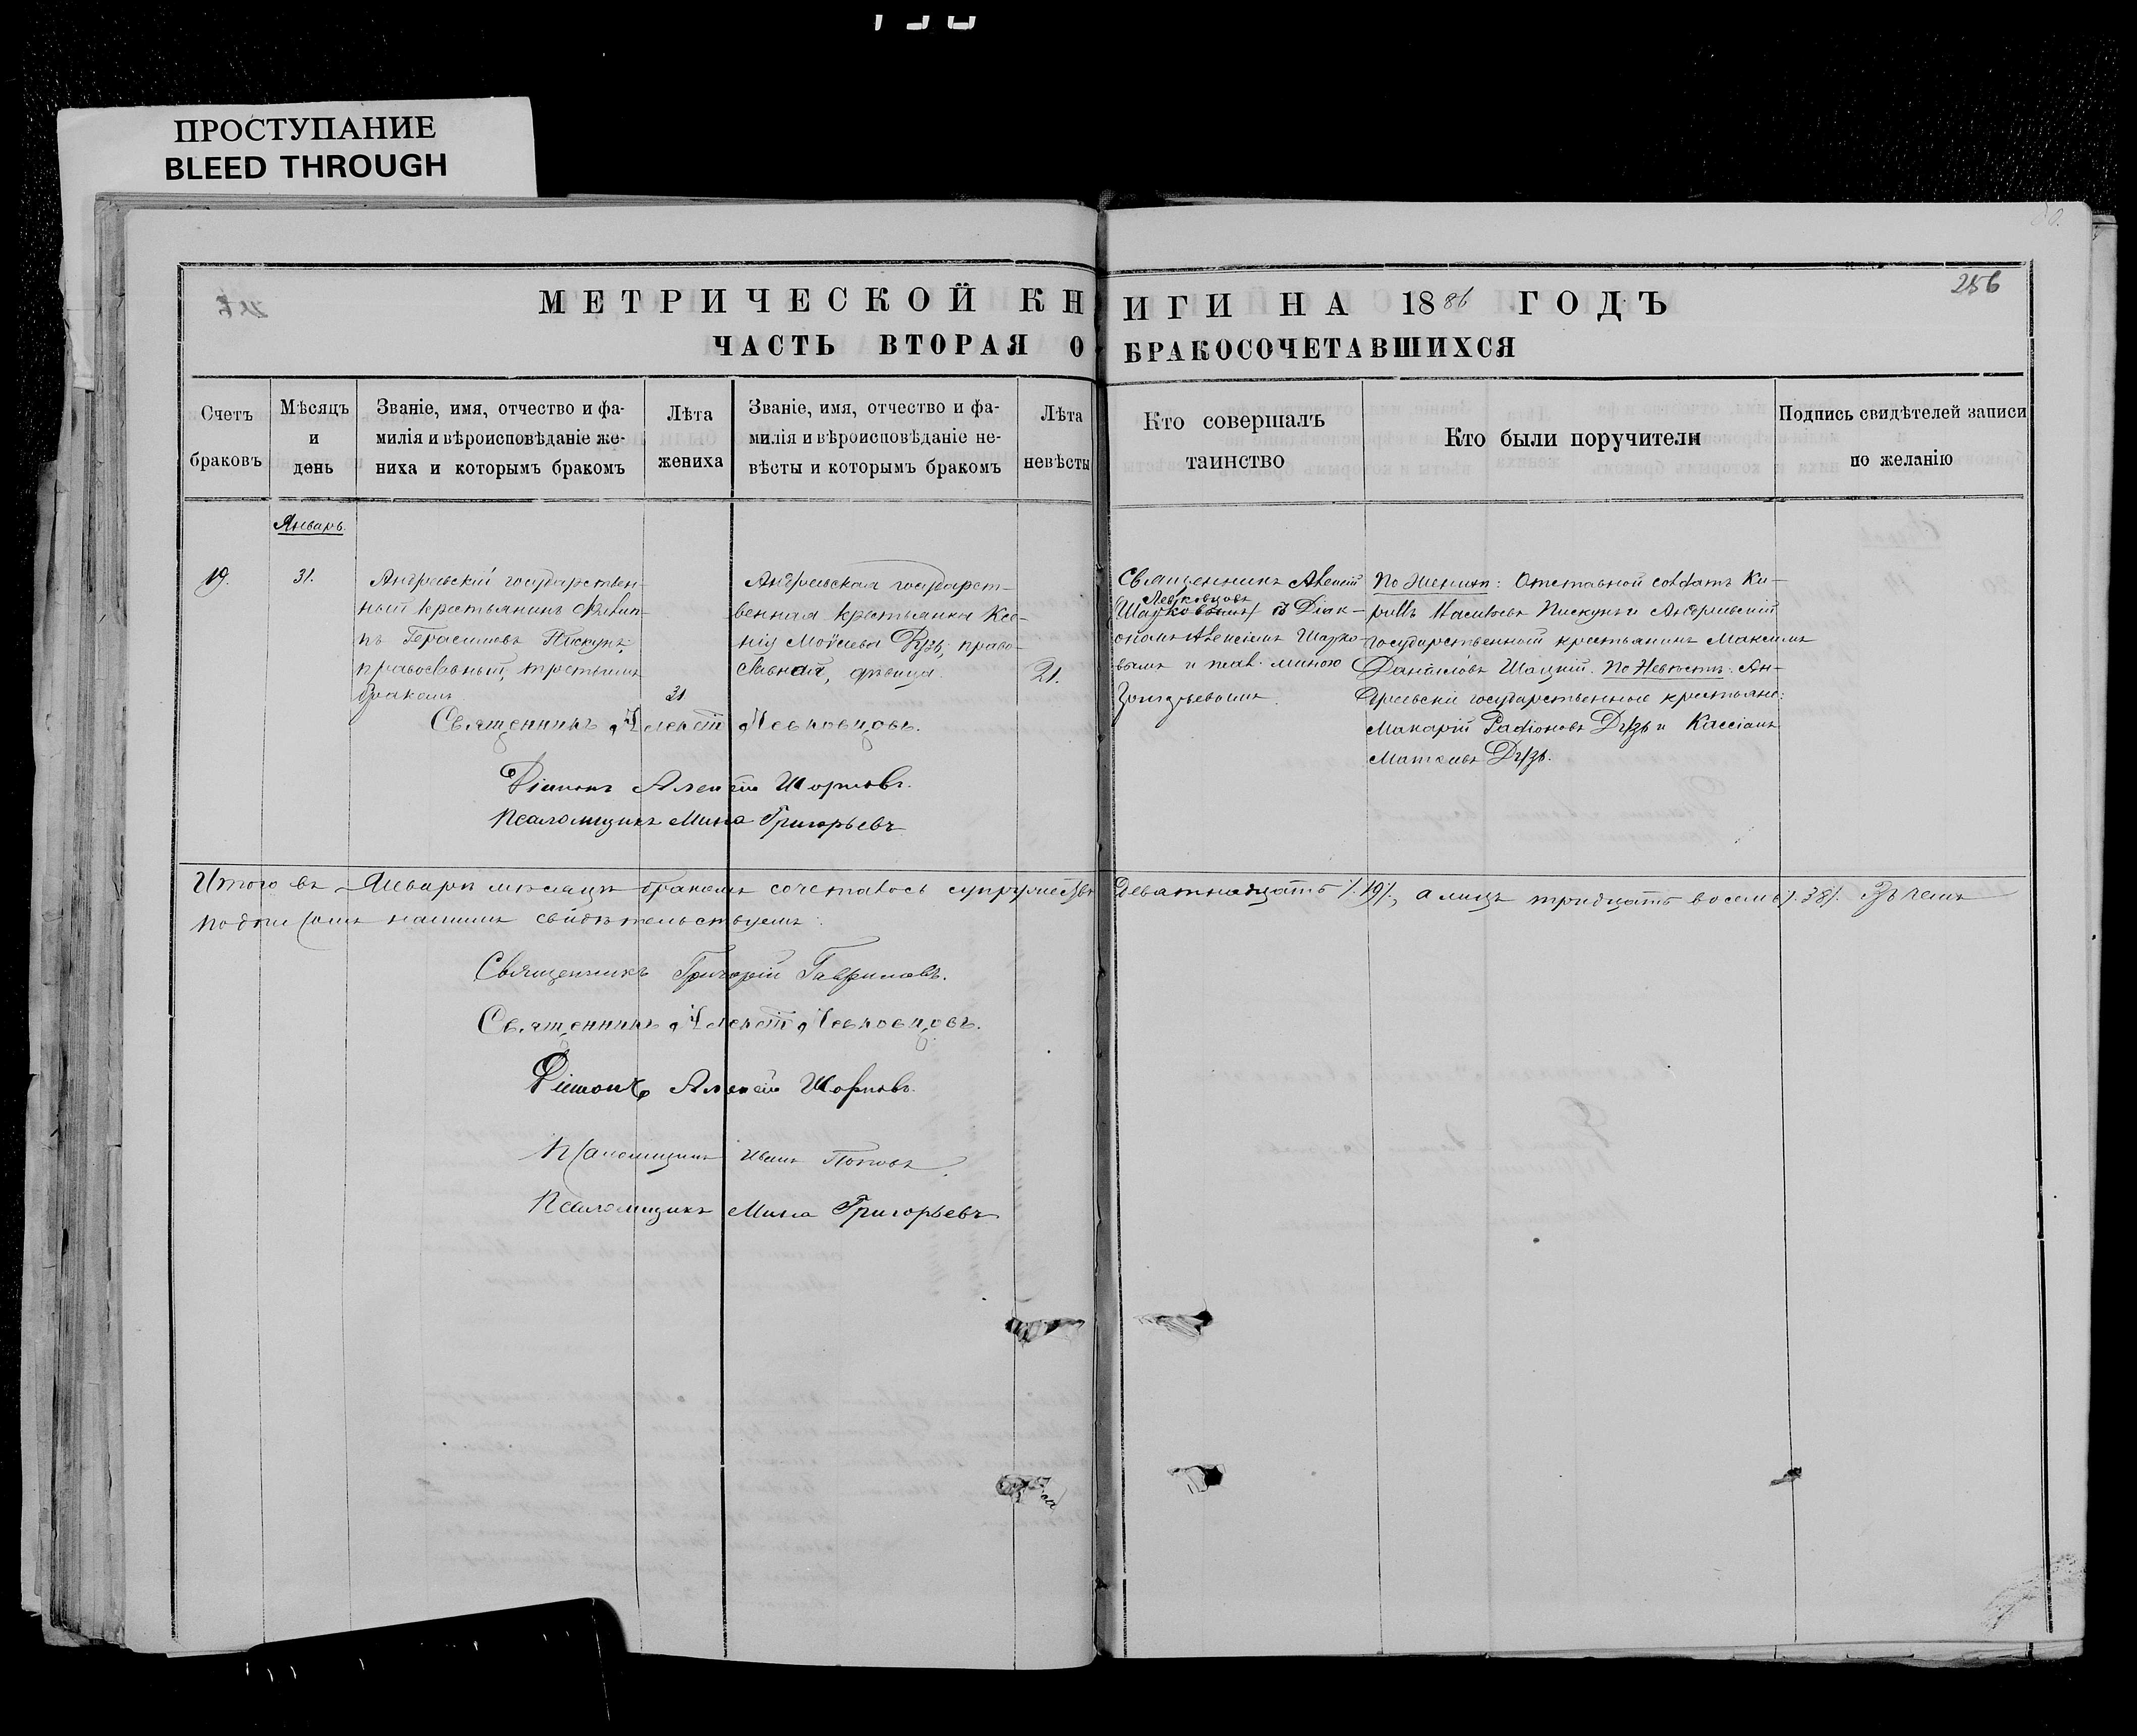 ПРОСТУПАНИЕ
BLEED THROUGH
256
МЕТРИЧЕСКОЙ КНИГИ НА 1886 ГОДЪ
ЧАСТЬ ВТОРАЯ О БРАКОСОЧЕТАВШИХСЯ
Счетъ
браковъ
Мѣсяцъ
и
день
Званіе, имя, отчество и фа-
милія и вѣроисповѣданіе же-
ниха и которымъ бракомъ
Лѣта
жениха
Званіе, имя, отчество и фа-
милія и вѣроисповѣданіе не-
вѣсты и которымъ бракомъ
Лѣта
невѣсты
Кто совершалъ
таинство
Кто были поручители
Подпись свидѣтелей записи
по желанію
Январь.
19.
31.
Андреевскій государствен-
ный крестьянинъ Филип-
пъ Герасимовъ Пискунъ,
православный, третьимъ
бракомъ
31
Андреевская государст-
венная крестьянка Ксе-
нія Моѵсеева Дузь, право-
славная, дѣвица.
21.
Священникъ Алексій
Левковцовъ
съ Діак-
ономъ Алексіемъ
и псал. Миною
Григорьевымъ.
По женихѣ: Отставной солдатъ Ки-
риллъ Пискунъ и Андреевскій
государственный крестьянинъ Максимъ
Даніиловъ Шацкій. По Невѣстѣ: Ан-
дреевскіе государственные крестьяне:
Макарій Радіоновъ Дузь и Кассіанъ
Матѳеевъ Дузь.
Священникъ Алексій Левковцовъ.
Діаконъ Алексій
Псаломщикъ Мина Григорьевъ
Итого въ Январѣ мѣсяцѣ бракомъ сочеталось супружествъ девятнадцать /.19/., а лицъ тридцать восемь /.38/. Въ чемъ
подписомъ нашимъ свидѣтельствуемъ:
Священникъ Григорій Гавриловъ.
Священникъ Алексій Левковцовъ.
Діаконъ Алексій
Псаломщикъ Иванъ Поповъ.
Псаломщикъ Мина Григорьевъ